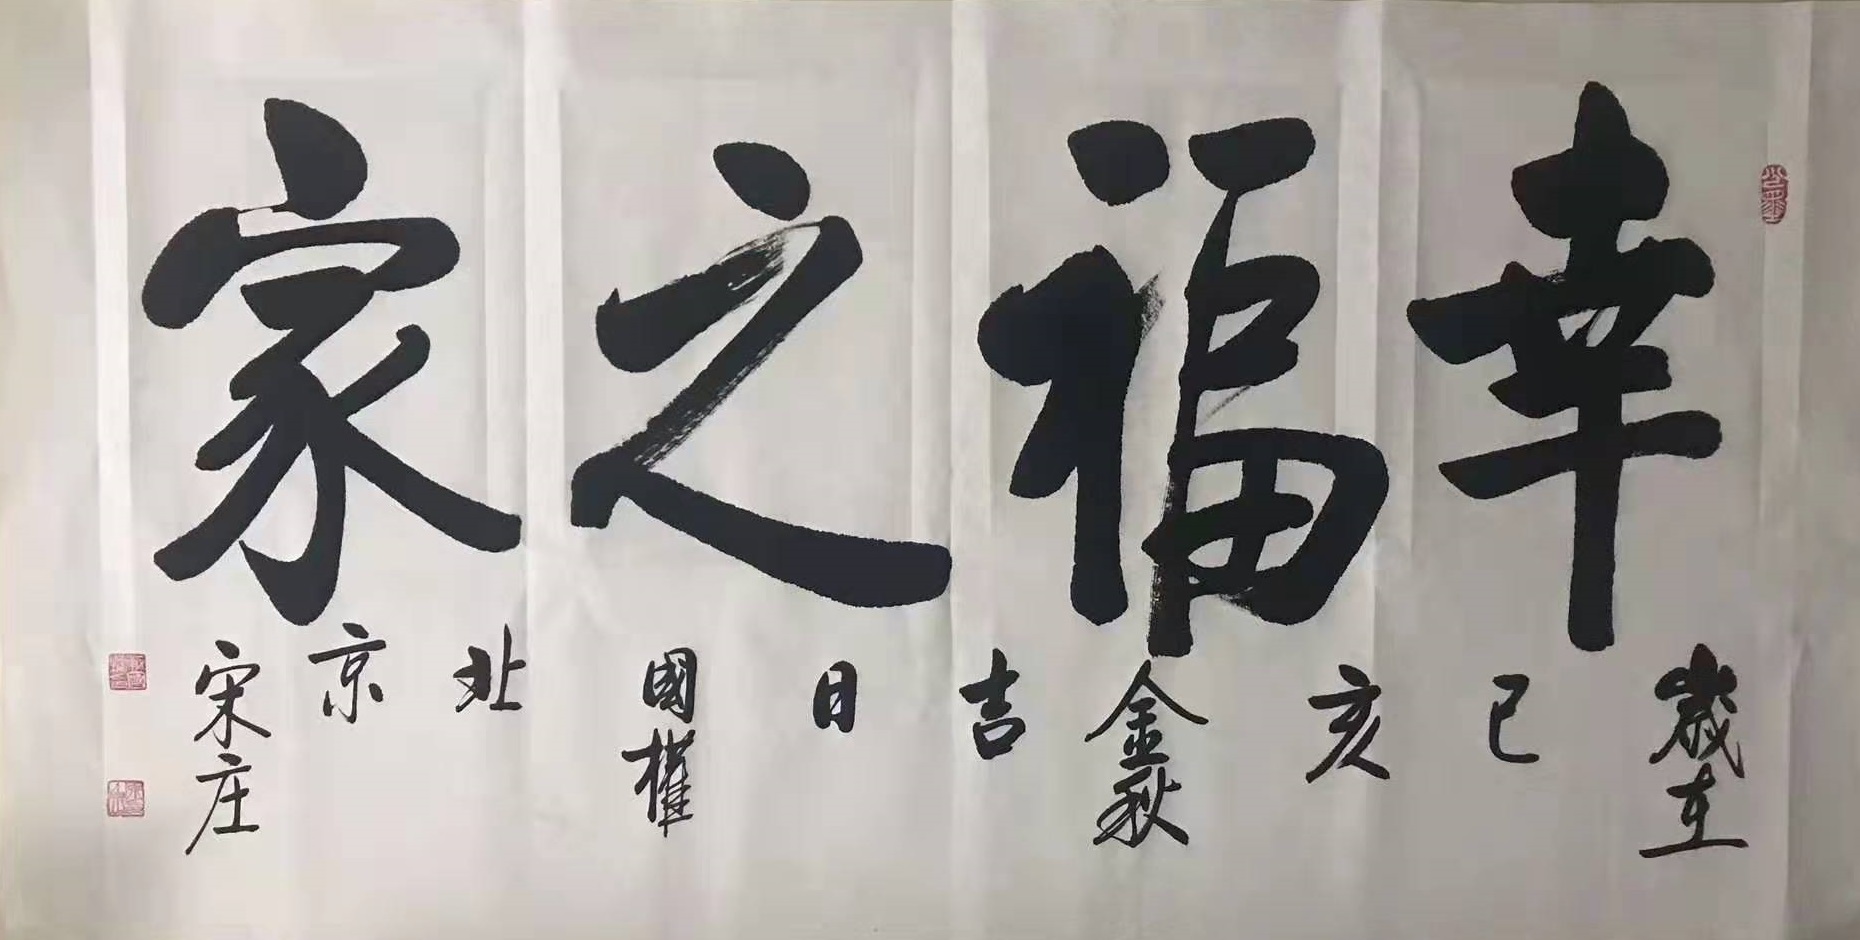 幸福之家
歲在己亥金秋吉日國權北京宋庄